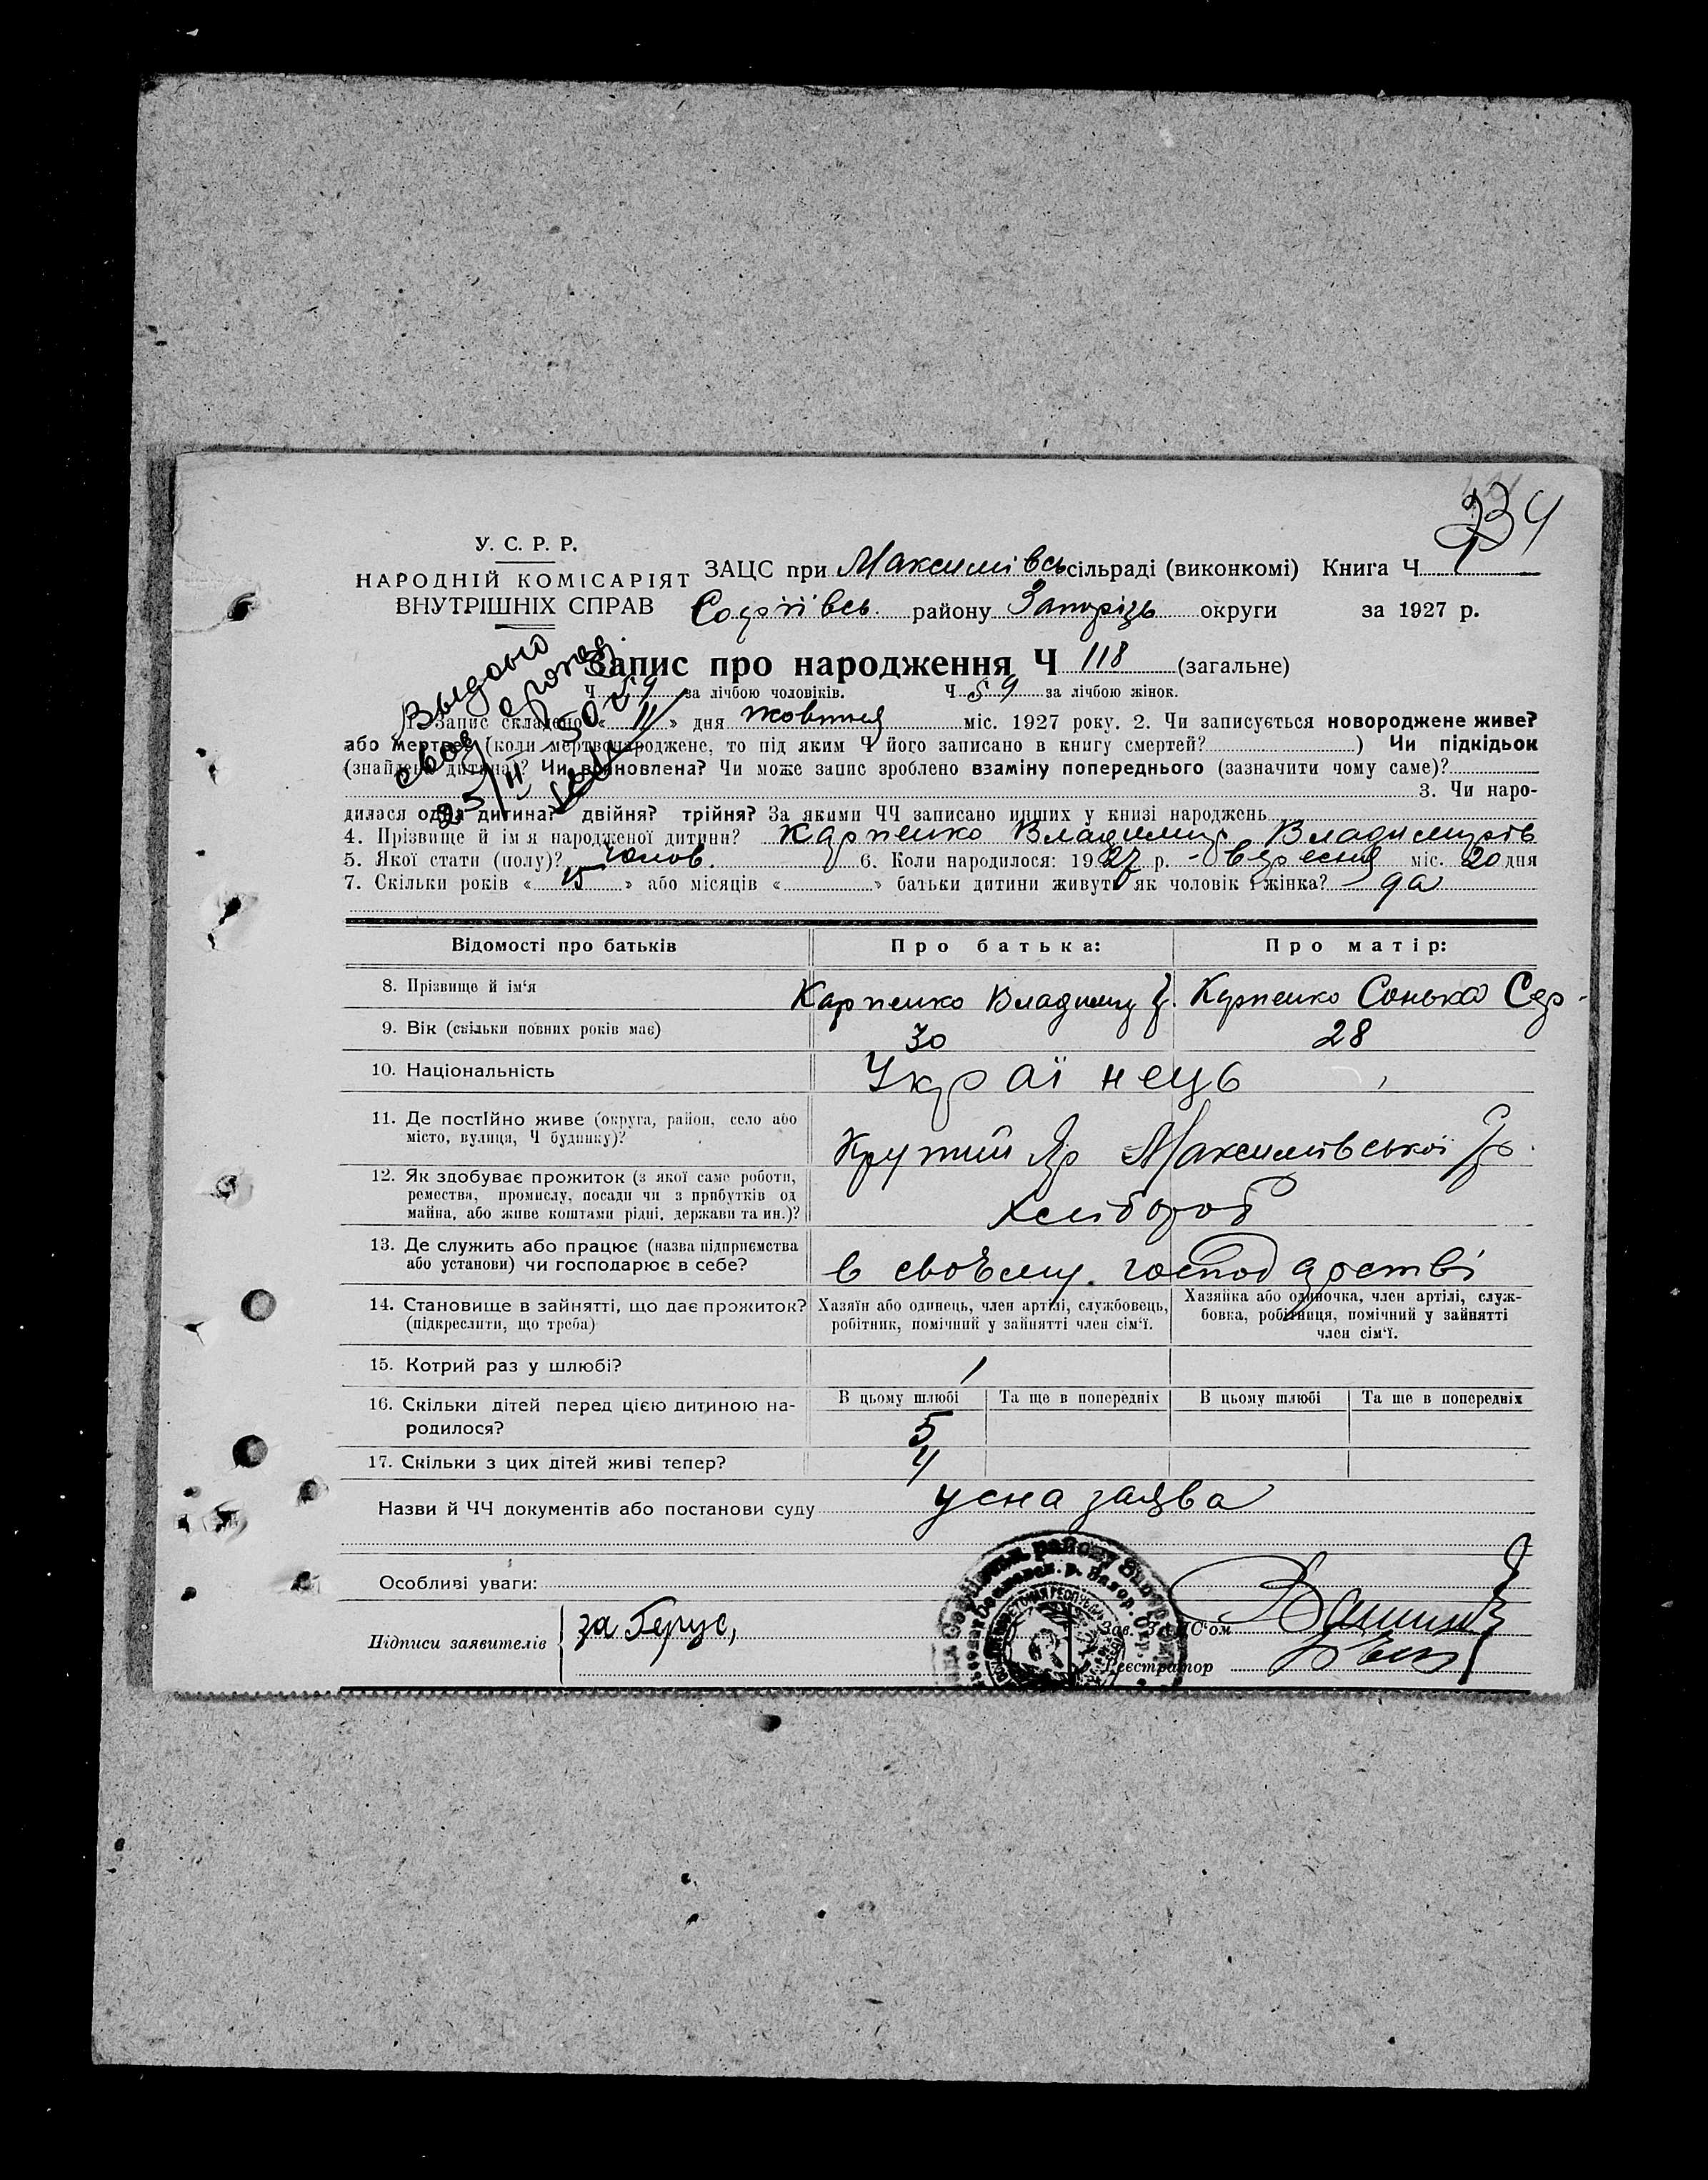 234
У. С. Р. Р.
НАРОДНІЙ КОМІСАРІЯТ
ВНУТРІШНІХ СПРАВ
ЗАЦС при Максимівсь сільраді (виконкомі) Книга Ч. 1
Софіївсь. району Запорізь округи за 1927 р.
Видано
Запис про народження Ч 118 (загальне)
Ч 59 за лічбою чоловіків. Ч 59 за лічбою жінок.
1. Запис складено « 11 » дня жовтня міс. 1927 року. 2. Чи записується новороджене живе?
або мертве? (коли мертвонароджене, то під яким Ч його записано в книгу смертей? ) Чи підкідьок
(знайдена дитина)? Чи вс­ановлена? Чи може запис зроблено взаміну попереднього (зазначити чому саме)?
3. Чи наро-
дилася одна дитина? двійня? трійня? За якими ЧЧ записано инших у книзі народжень
4. Прізвище й ім я народженої дитини? Карпенко Владимир Владимирів
5. Якої стати (полу)? чолов. 6. Коли народилося: 1927 р. - вересня міс. 20 дня
7. Скільки років « » або місяців « » батьки дитини живуть як чоловік і жінка? да
Відомості про батьків Про батька: Про матір:
8. Прізвище й ім'я Карпенко Владимир Карпенко Сонька
9. Вік (скільки повних років має) 30 28
10. Національність Українець
11. Де постІйно живе (округа, район, село або
місто, вулиця, Ч будинку)? Крутий Яр Максимівської
12. Як здобуває прожиток (з якої саме роботи,
ремества, промислу, посади чи з прибутків од
майна, або живе коштами рідні, держави та ин.)? Хлібороб
13. Де служить або працює (назва підприємства
або установи) чи господарює в себе? в своєму господарстві
14. Становище в зайнятті, що дає прожиток?
(підкреслити, що треба)
Хазяїн або одинець, член артілі, службовець,
робітник, помічний у зайнятті член сім'ї.
Хазяйка або одиночка, член артілі, служ-
бовка, робітниця, помічний у зайнятті
член сім'ї.
15. Котрий раз у шлюбі? 1
16. Скільки дітей перед цією дитиною на-
родилося?
В цьому шлюбі Та ще в попередніх В цьому шлюбі Та ще в попередніх
5
17. Скільки з цих дітей живі тепер? 4
Назви й ЧЧ документів або постанови суду усна заява
Особливі уваги:
Підписи заявителів за Герус,
Зав. ЗАЦС'ом
Реєстратор